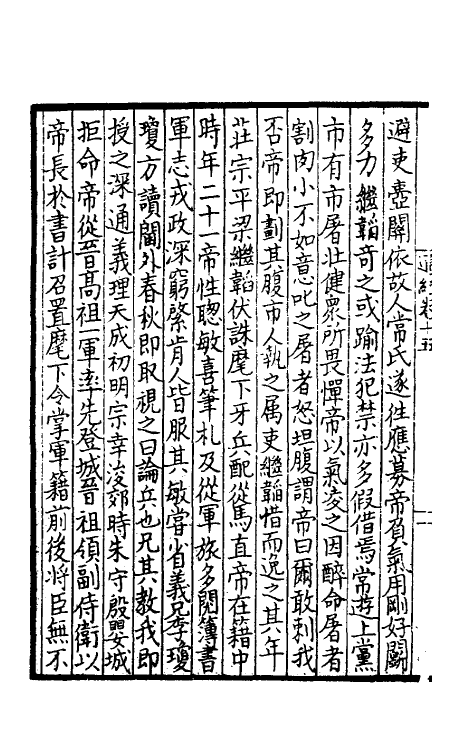 避吏壺關依故人常氏遂往應募帝負氣用剛好鬭
多力繼韜奇之或踰法犯禁亦多假借焉常遊上黨
市有市屠壯健衆所畏憚帝以氣凌之因醉命屠者
割肉小不如意叱之屠者怒坦腹謂帝曰爾敢刺我
否帝即劃其腹市人執之属吏繼韜惜而逸之其年
莊宗平梁繼韜伏誅麾下牙兵配從馬直帝在籍中
時年二十一帝性聰敏喜筆札及從軍旅多閱簿書
軍志戎政深窮綮肯人皆服其敏嘗省義兄李瓊
瓊方讀閫外春秋即取視之曰論兵也兄其教我即
授之深通義理天成初明宗幸浚郊時朱守殷嬰城
拒命帝從晉髙祖一軍率先登城晉祖領副侍衛以
帝長於書計召置麾下令掌軍籍前後將臣無不